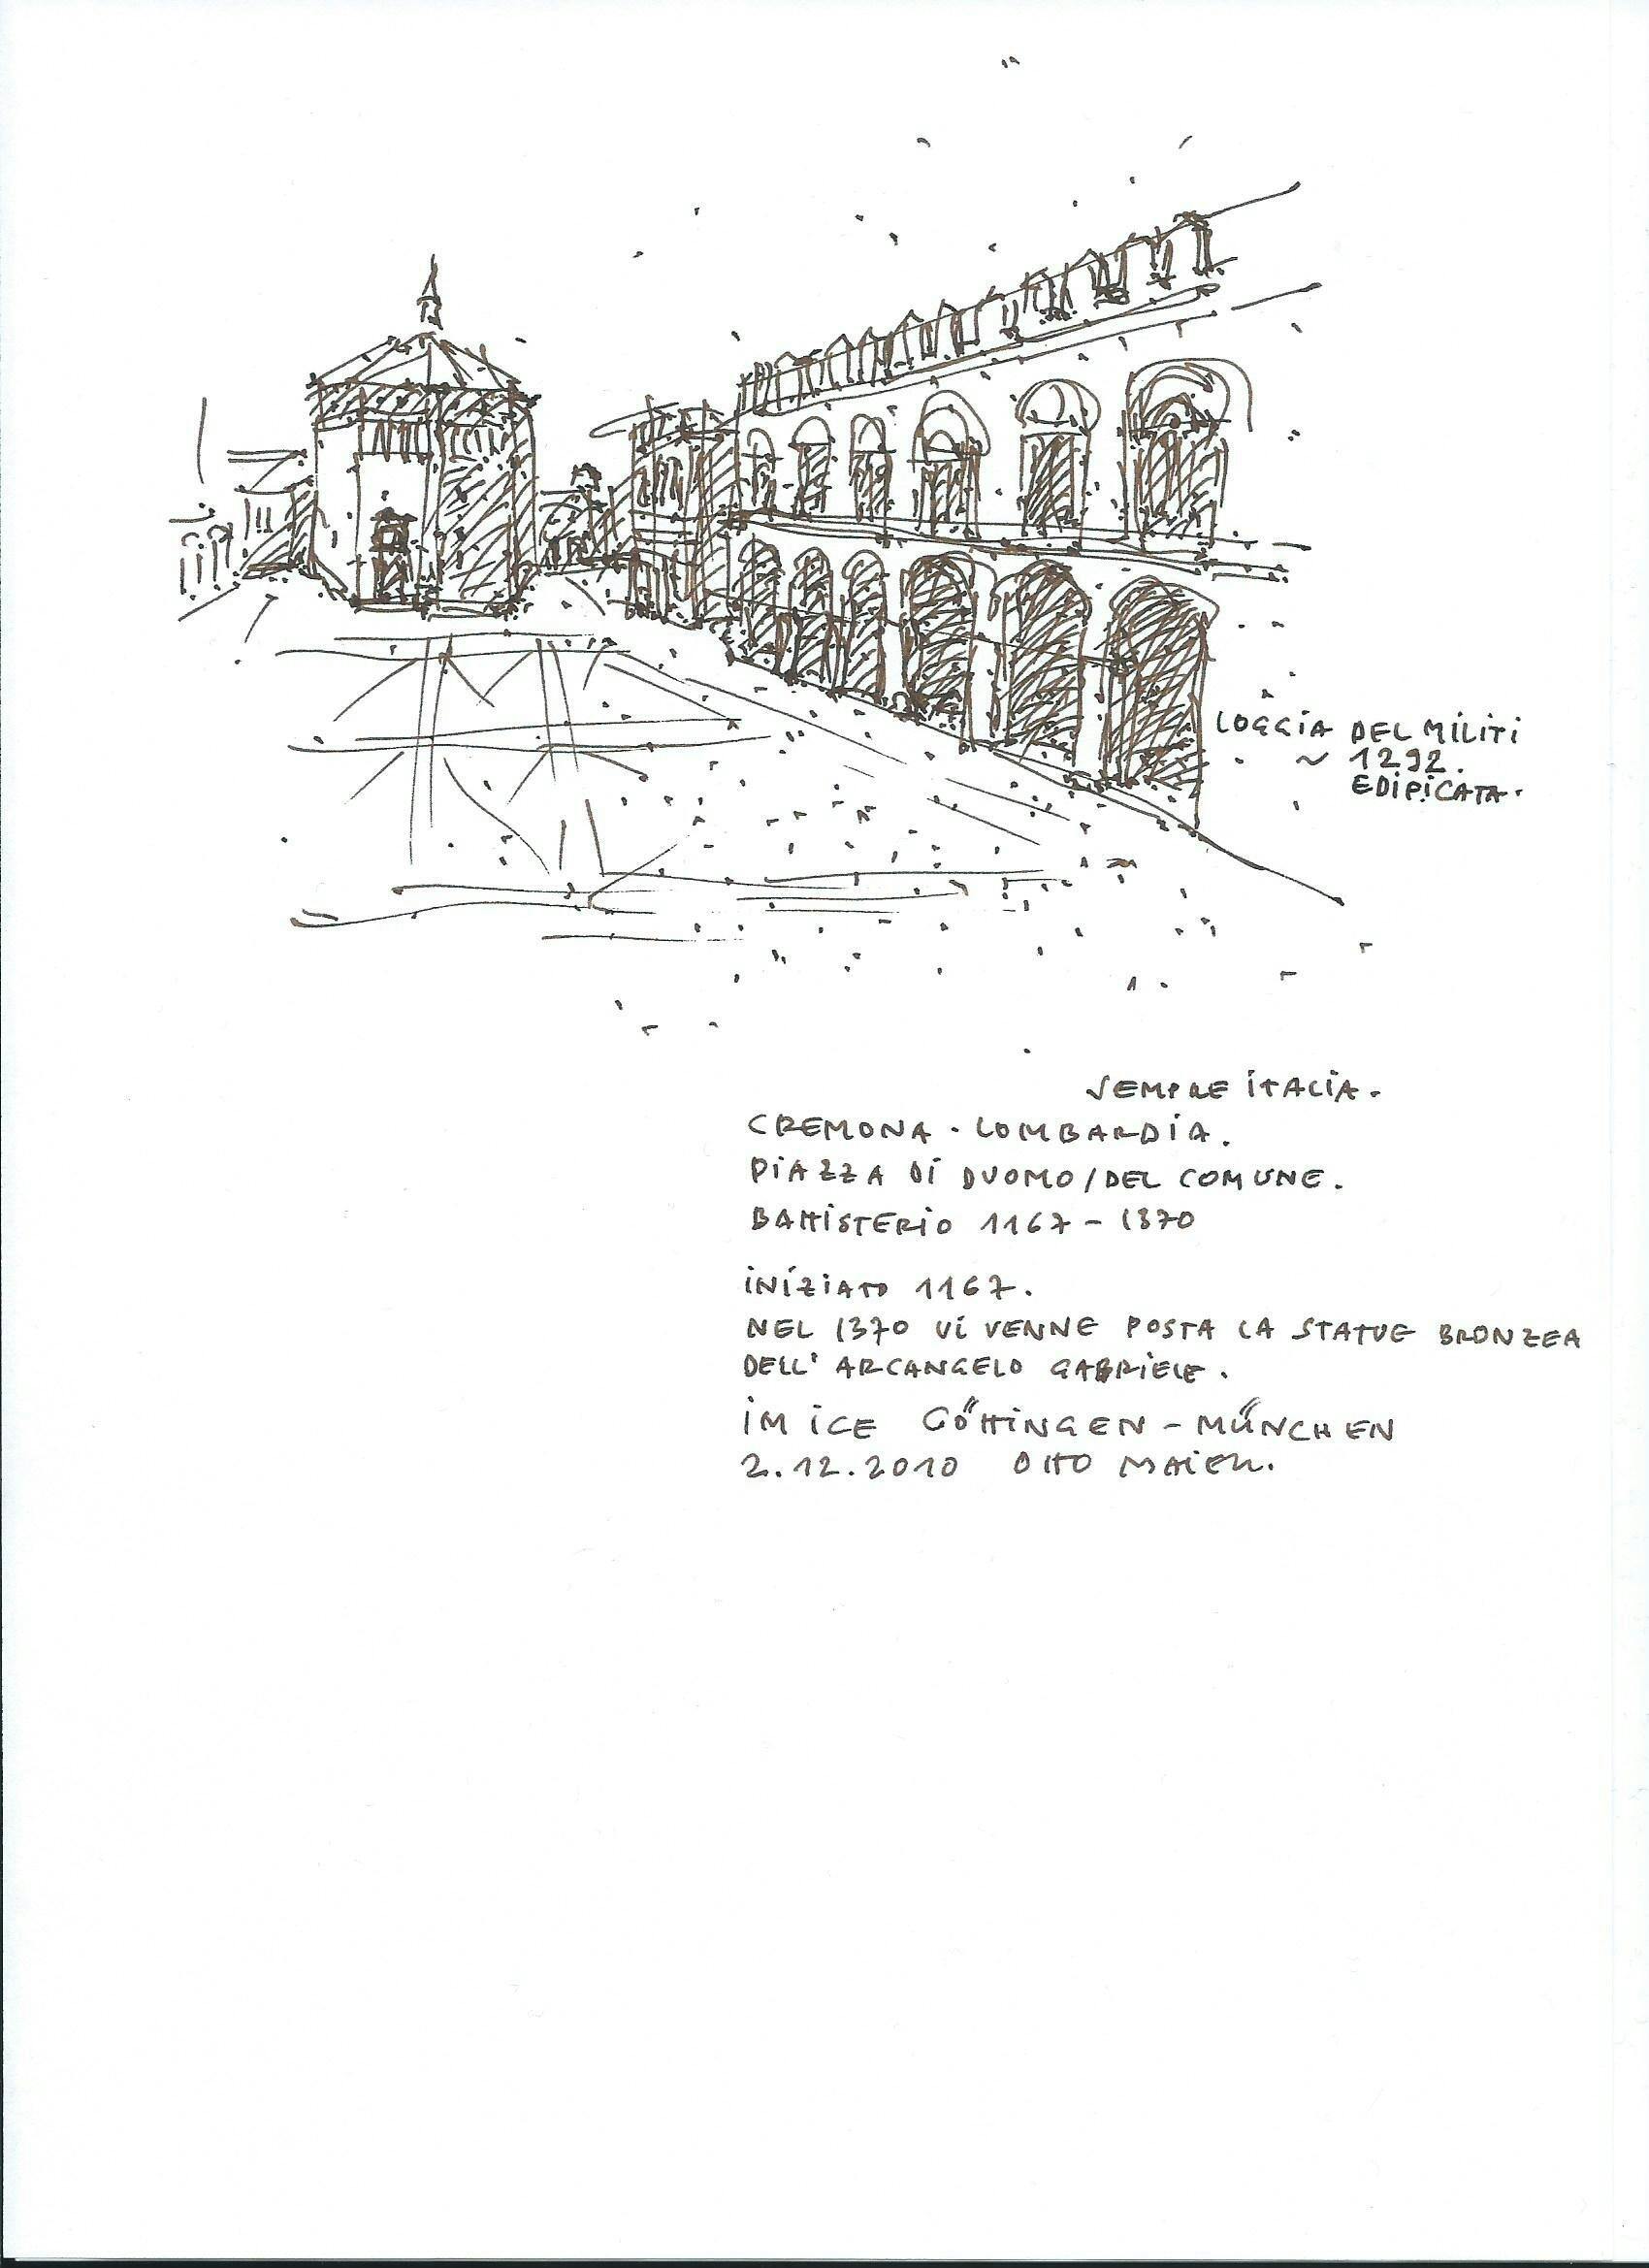 LOGGIA DEL MILITI
~ 1292.
EDIPICATA.
SEMPRE ITALIA.
CREMONA. LOMBARDIA.
PIAZZA DI DUOMO/DEL COMUNE.
BATTISTERIO 1167-1370
INIZIATO 1167.
NEL 1370 VI VENNE POSTA LA STATUE BRONZEA
DELL' ARCANGELO GABRIELE.
IM ICE GÖTTINGEN-MÜNCHEN
2.12.2010 OTTO MAIER.